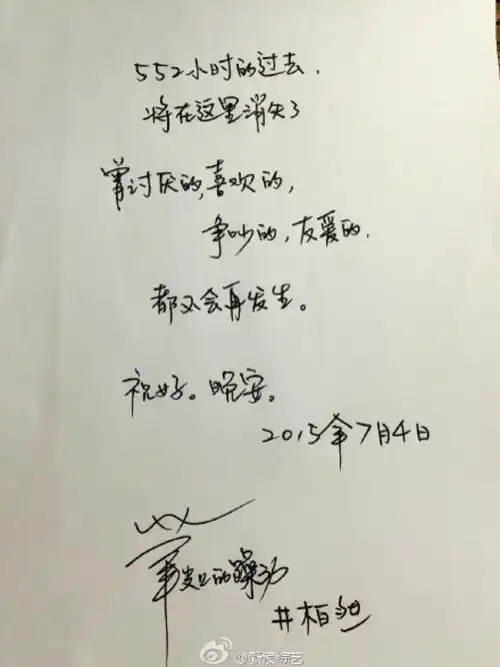 552小时的过去.
将在这里消失了
曾讨厌的,喜欢的,
争吵的,友爱的.
都不会再发生。
祝好。晚安。
2015年7月4日
的躁动
井柏
综艺